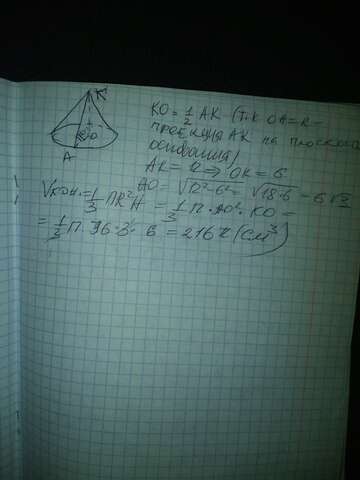 K
O
A
KO = 1/2 AK (т.к. OA = R -
проекция AK на плоскость
основания)
AK = 12 => OK = 6
AO = √12²-6² = √18·6 = 6√3
Vкон. = 1/3 ПR²H = 1/3 П · AO² · KO =
= 1/3 П · 36 · 3 · 6 = 216 π (см³)